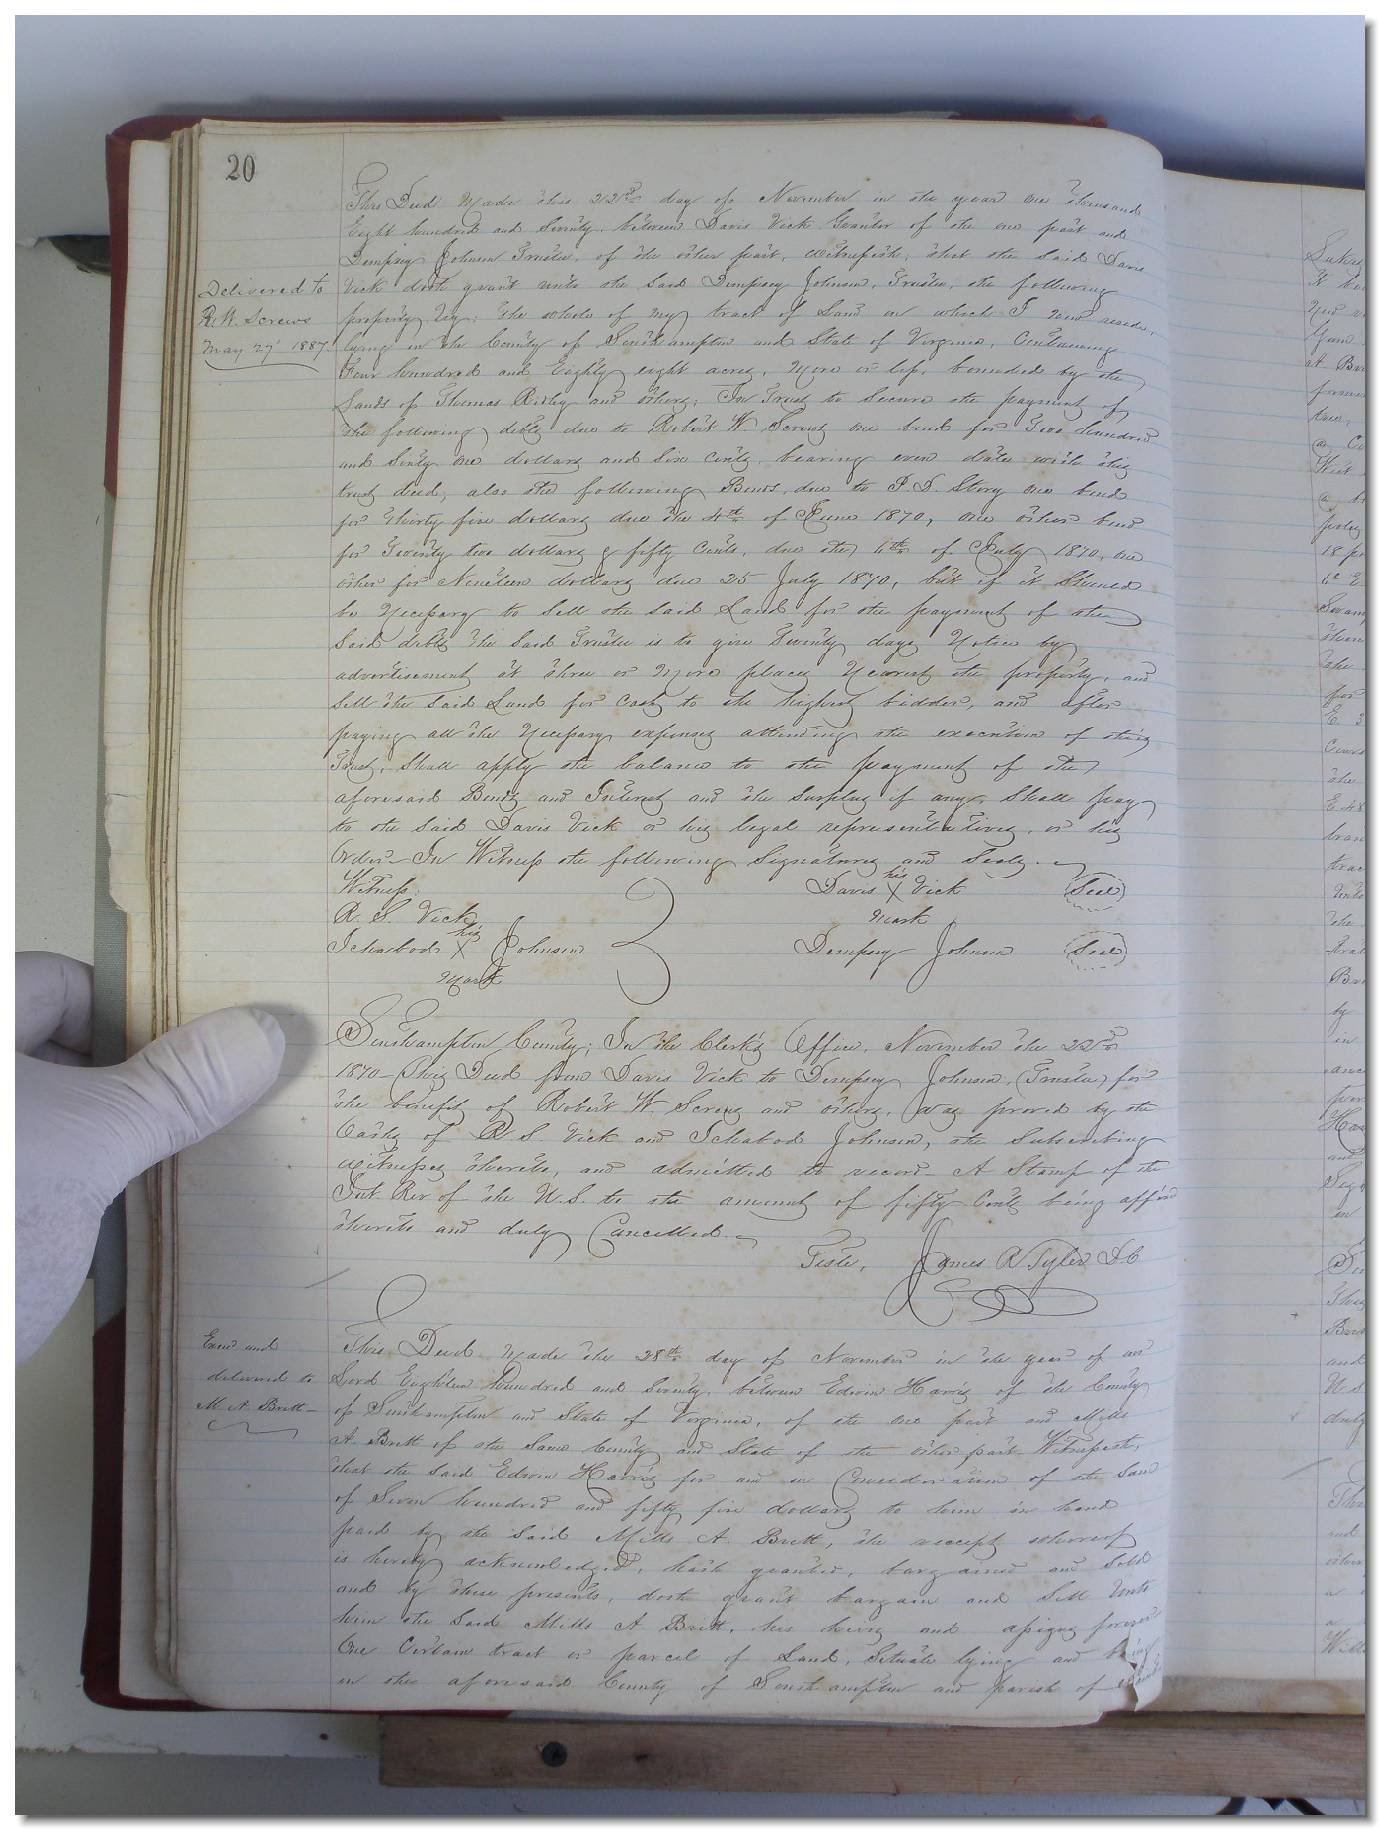 20
This Deed Made this 22nd day of November in the year one thousand
Eight hundred and Seventy, between Davis Vick Grantor of the one part and
Dempsey Johnson Trustee, of the other part, Witnesseth, that the said Davis
Delivered to
R. W. Screws
May 27 1887.
Vick doth grant unto the said Dempsey Johnson, Trustee, the following
property, viz; The whole of my tract of Land on which I now reside,
lying in the County of Southampton and State of Virginia, Containing
Four hundred and Eighty eight acres, more or less, bounded by the
Lands of Thomas Ridley and others; In Trust to Secure the payment of
the following debts due to Robert W. Screws one bond for Two hundred
and Sixty one dollars and Six Cents, bearing even date with this
trust deed, also the following Bonds, due to P. D. Story one bond
for Thirty five dollars due the 4th of June 1870, one other bond
for Twenty two dollars & fifty Cents, due the 4th of July 1870, one
other for Nineteen dollars due 25 July 1870, but if it Should
be Necessary to Sell the said Land for the payment of the
Said debts the Said Trustee is to give Twenty days Notice by
advertisement at three or more places Nearest the property, and
Sell the Said Land for Cash to the highest bidder, and after
paying all the Necessary expenses attending the execution of this
Trust, Shall apply the balance to the payment of the
aforesaid Bonds and Interest and the Surplus if any, Shall pay
to the said Davis Vick or his legal representatives, or his
Order - In Witness the following Signatures and Seals.
Witness: Davis his X Vick (Seal)
R. S. Vick mark
Ichabod his X Johnson Dempsey Johnson (Seal)
Mark
Southampton County; In the Clerk's Office, November the 22nd
1870 - This Deed from Davis Vick to Dempsey Johnson, (Trustee) for
the benefit of Robert W. Screws and others, was proved by the
Oaths of R. S. Vick and Ichabod Johnson, the Subscribing
witnesses thereto, and admitted to record - A Stamp of the
Int. Rev of the U. S. to the amount of fifty Cents being affixed
thereto and duly Cancelled.
Teste, James R Tyler D. C
Examd and
delivered to
M. A. Britt -
This Deed made the 28th day of November in the year of our
Lord Eighteen hundred and Seventy, between Edwin Harris of the County
of Southampton and State of Virginia, of the one part and Mills
A. Britt of the Same County and State of the other part Witnesseth,
that the said Edwin Harris for and in Consideration of the Sum
of Seven hundred and fifty five dollars to him in hand
paid by the Said Mills A. Britt, the receipt whereof
is hereby acknowledged, hath granted, bargained and Sold
and by these presents, doth grant bargain and Sell Unto
him the Said Mills A Britt, his heirs and assigns forever
One Certain tract or parcel of Land, Situate lying and being
in the aforesaid County of Southampton and parish of